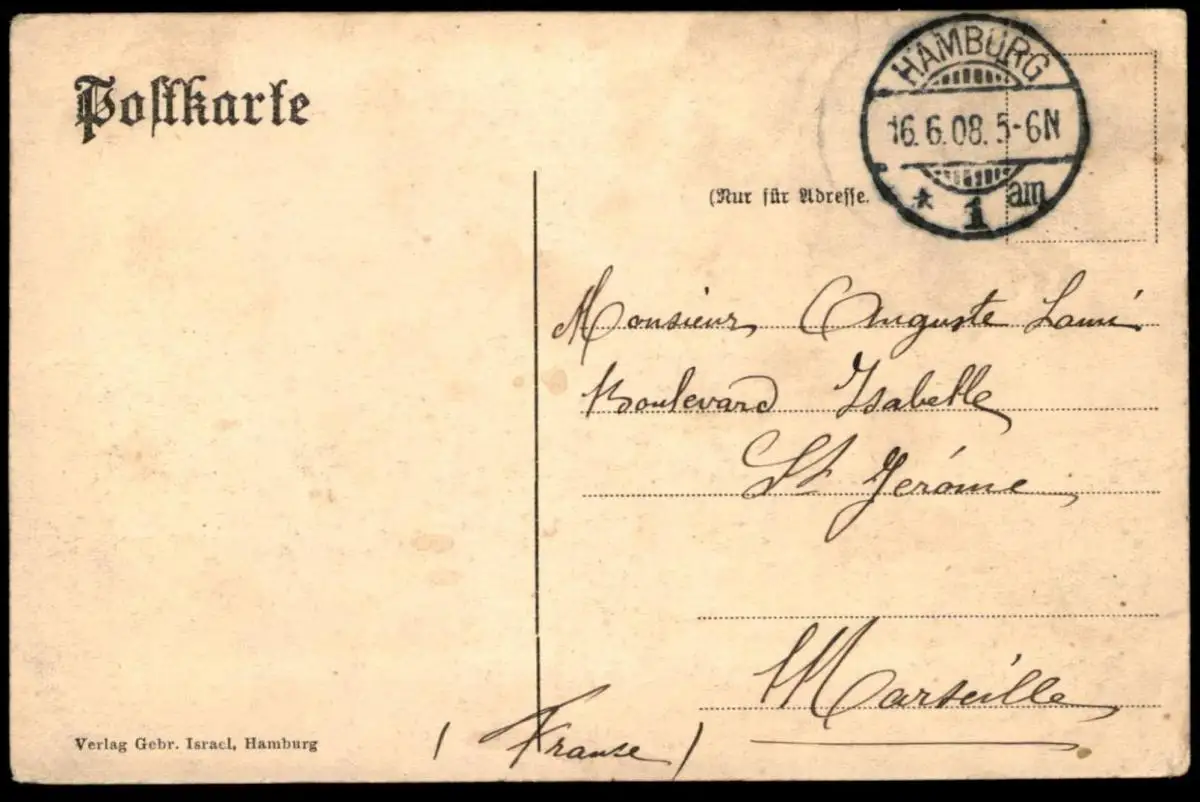 Postkarte
HAMBURG
16.6.08. 5-6N
* 1 am
(Nur für Adresse.
Monsieur Auguste Lami
Boulevard Isabelle
St Jérôme
Marseille
(Franse)
Verlag Gebr. Israel, Hamburg